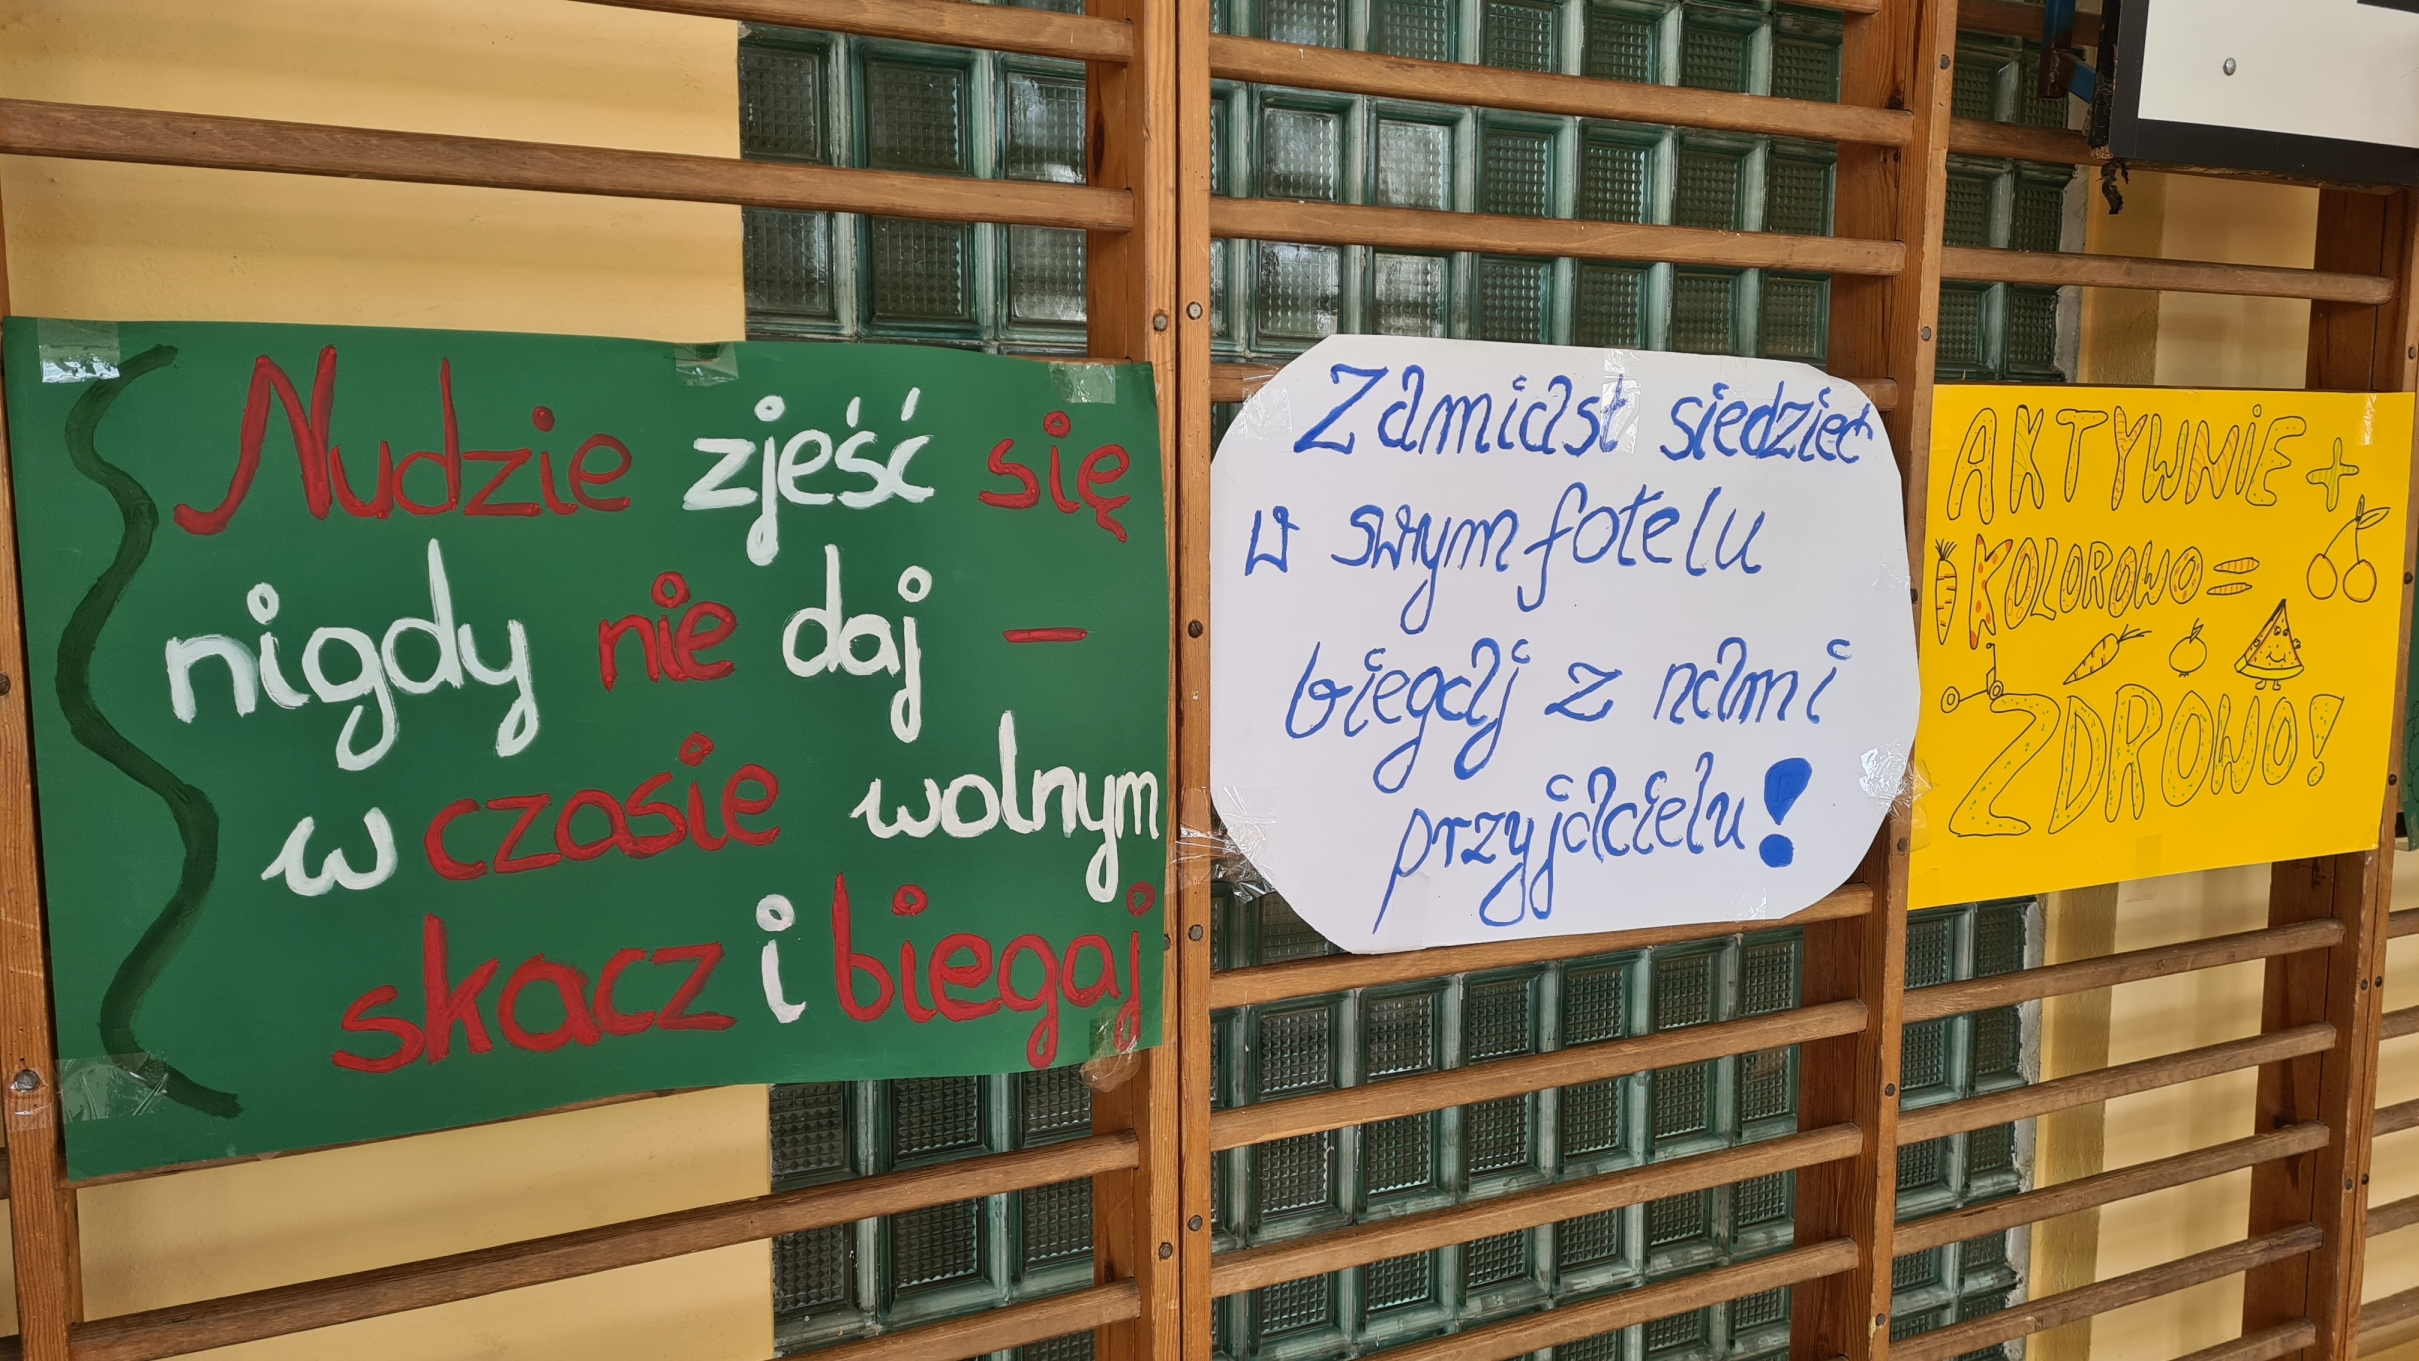 Nudzie zjeść się
nigdy nie daj –
w czasie wolnym
skacz i biegaj
Zamiast siedzieć
w swym fotelu
biegaj z nami
przyjacielu!
AKTYWNIE +
KOLOROWO =
ZDROWO!